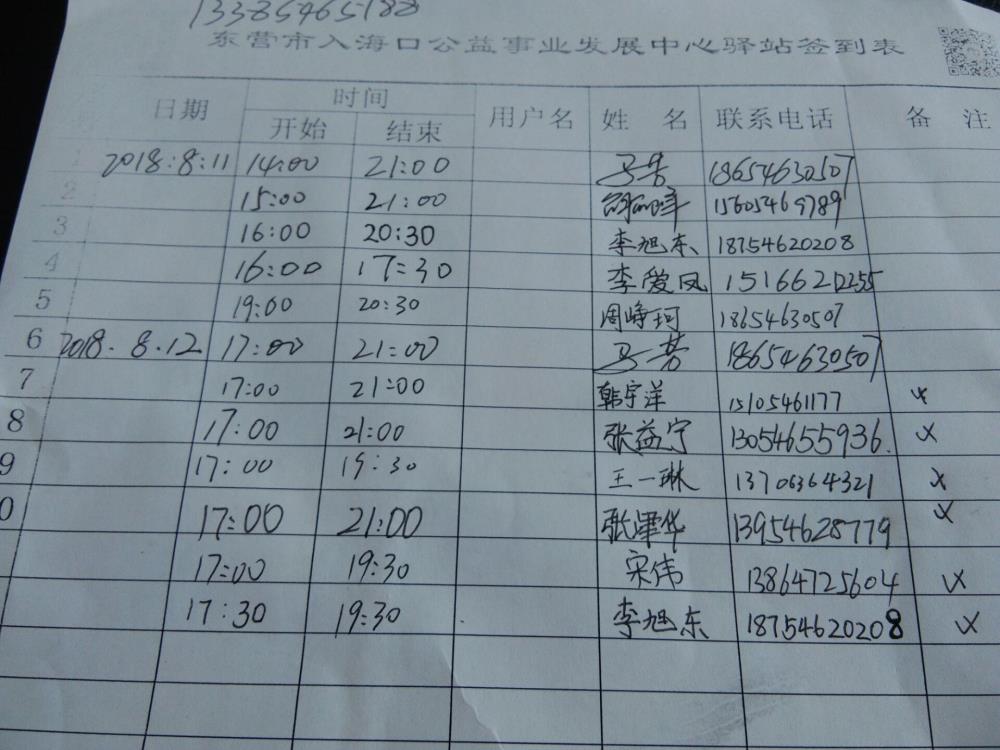 13385465188
东营市入海口公益事业发展中心驿站签到表
日期 时间 用户名 姓 名 联系电话 备 注
开始 结束
1 2018:8:11 14:00 21:00 马芳 18654630507
2 15:00 21:00 15605469789
3 16:00 20:30 李旭东 18754620208
4 16:00 17:30 李爱凤 15166212255
5 19:00 20:30 周峥珂 18654630507
6 2018.8.12 17:00 21:00 马芳 18654630507
7 17:00 21:00 韩宇洋 15105461177
8 17:00 21:00 张益宁 13054655936.
9 17:00 19:30 王一琳 13706364321
0 17:00 21:00 张肇华 13954628779
17:00 19:30 宋伟 13864725604
17:30 19:30 李旭东 18754620208